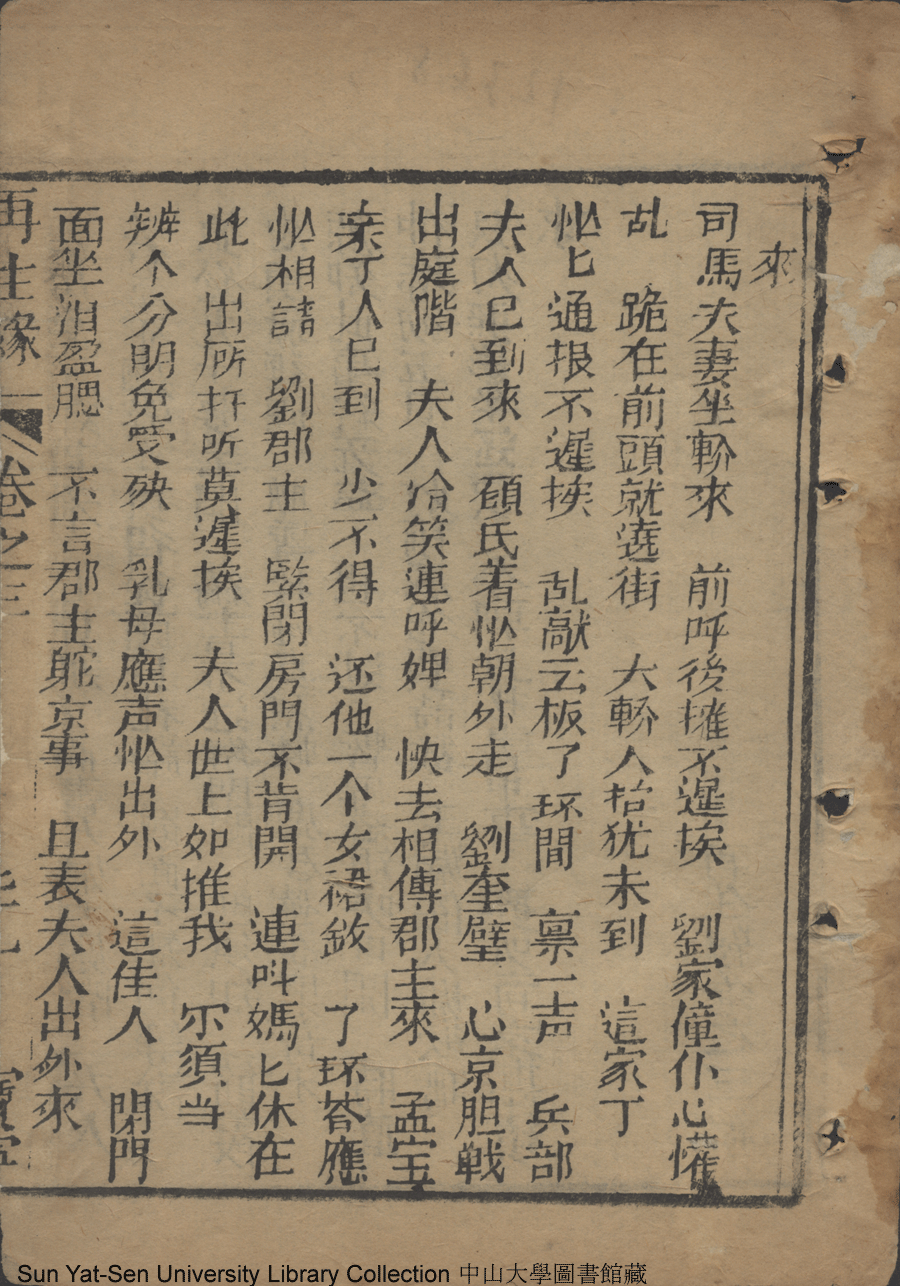 來
司馬夫妻坐轎來　前呼後擁不遲挨　劉家僮仆心懼
乱　跪在前頭就遶街　大轎人抬犹未到　這家丁
忙匕通报不遲挨　乱敲云板了环間　禀一声　兵部
夫人已到來　碩氏着忙朝外走　劉奎璧　心京胆戦
出庭階　夫人冷笑連呼婢　快去相傳郡主來　孟宝
亲丁人已到　少不得　还他一个女裙釵　了环荅應
忙相請　劉郡主　緊閉房門不肯開　連呌媽匕休在
此　出所打听莫遲挨　夫人世上如推我　尔須当
辨个分明免受殃　乳母應声忙出外　這佳人　閉門
面坐泪盈腮　不言郡主躭京事　且表夫人出外來
再生緣　卷之三